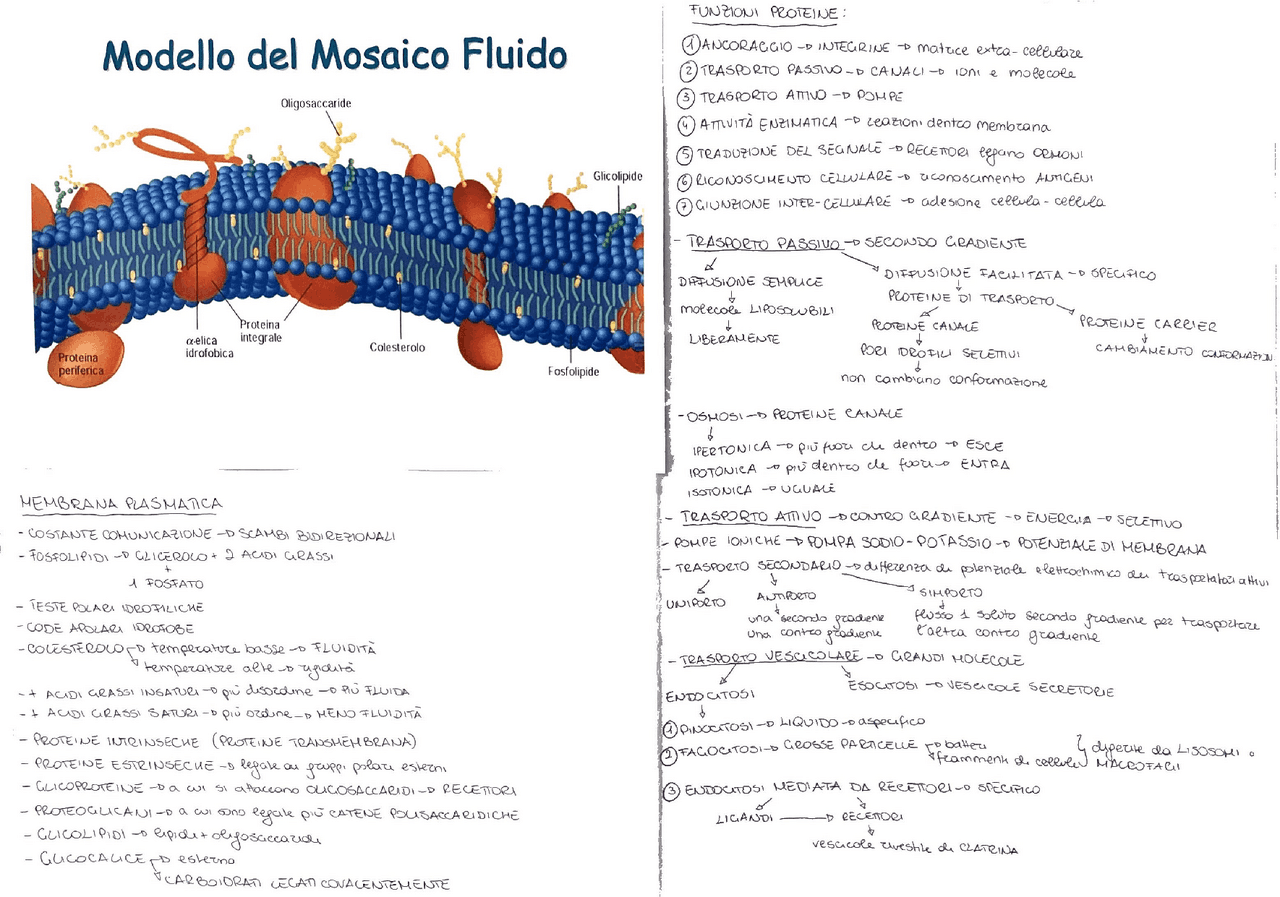 Modello del Mosaico Fluido
Oligosaccaride
Glicolipide
Proteina integrale
α-elica idrofobica
Colesterolo
Proteina periferica
Fosfolipide
MEMBRANA PLASMATICA
- COSTANTE COMUNICAZIONE → SCAMBI BIDIREZIONALI
- FOSFOLIPIDI → GLICEROLO + 2 ACIDI GRASSI
+
1 FOSFATO
- TESTE POLARI IDROFILICHE
- CODE APOLARI IDROFOBE
- COLESTEROLO → temperature basse → FLUIDITÀ
temperature alte → rigidità
- + ACIDI GRASSI INSATURI → più disordine → PIÙ FLUIDA
- + ACIDI GRASSI SATURI → più ordine → MENO FLUIDITÀ
- PROTEINE INTRINSECHE (PROTEINE TRANSMEMBRANA)
- PROTEINE ESTRINSECHE → legate ai gruppi polari esterni
- GLICOPROTEINE → a cui si attaccano OLIGOSACCARIDI → RECETTORI
- PROTEOGLICANI → a cui sono legate più CATENE POLISACCARIDICHE
- GLICOLIPIDI → lipidi + oligosaccaridi
- GLICOCALICE → esterno
CARBOIDRATI LEGATI COVALENTEMENTE
FUNZIONI PROTEINE:
① ANCORAGGIO → INTEGRINE → matrice extra-cellulare
② TRASPORTO PASSIVO → CANALI → ioni e molecole
③ TRASPORTO ATTIVO → POMPE
④ ATTIVITÀ ENZIMATICA → reazioni dentro membrana
⑤ TRADUZIONE DEL SEGNALE → RECETTORI legano ORMONI
⑥ RICONOSCIMENTO CELLULARE → riconoscimento ANTIGENI
⑦ GIUNZIONE INTER-CELLULARE → adesione cellula-cellula
- TRASPORTO PASSIVO → SECONDO GRADIENTE
DIFFUSIONE SEMPLICE
molecole LIPOSOLUBILI
LIBERAMENTE
DIFFUSIONE FACILITATA → SPECIFICO
PROTEINE DI TRASPORTO
PROTEINE CANALE
PORI IDROFILI SELETTIVI
non cambiano conformazione
PROTEINE CARRIER
CAMBIAMENTO CONFORMAZION.
- OSMOSI → PROTEINE CANALE
IPERTONICA → più fuori che dentro → ESCE
IPOTONICA → più dentro che fuori → ENTRA
ISOTONICA → UGUALE
- TRASPORTO ATTIVO → CONTRO GRADIENTE → ENERGIA → SELETTIVO
- POMPE IONICHE → POMPA SODIO-POTASSIO → POTENZIALE DI MEMBRANA
- TRASPORTO SECONDARIO → differenza di potenziale elettrochimico dei trasportatori attivi
UNIPORTO
ANTIPORTO
una secondo gradiente
una contro gradiente
SIMPORTO
flusso 1 soluto secondo gradiente per trasportare
l'altra contro gradiente
- TRASPORTO VESCICOLARE → GRANDI MOLECOLE
ENDOCITOSI
ESOCITOSI → VESCICOLE SECRETORIE
① PINOCITOSI → LIQUIDO → aspecifico
② FAGOCITOSI → GROSSE PARTICELLE → batteri
frammenti di cellule } digerite da LISOSOMI o
MACROFAGI
③ ENDOCITOSI MEDIATA DA RECETTORI → SPECIFICO
LIGANDI → RECETTORI
vescicole rivestite di CLATRINA